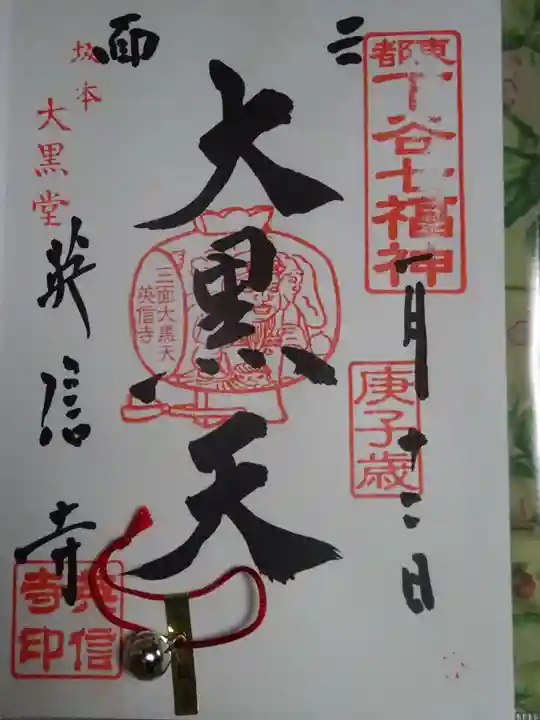 東都
下谷七福神
庚子歳
一月十二日
三面
大黒天
三面大黒天
英信寺
坂本
大黒堂
英信寺
英信
寺印